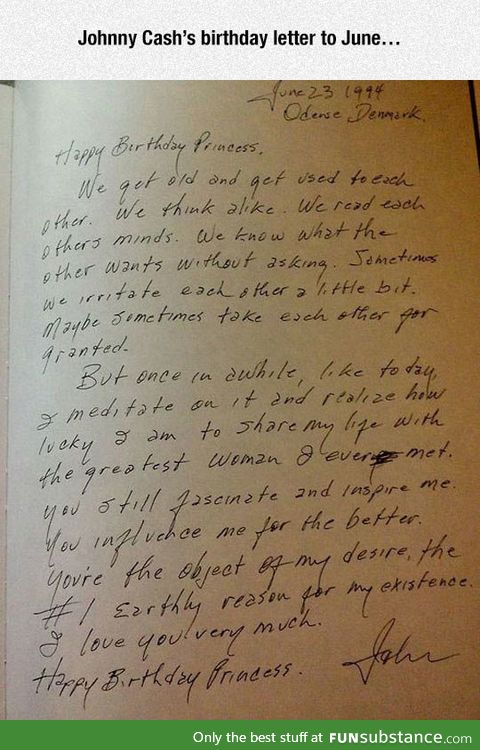 Johnny Cash's birthday letter to June...
June 23 1994
Odense, Denmark.
Happy Birthday Princess,
We get old and get used to each
other. We think alike. We read each
others minds. We know what the
other wants without asking. Sometimes
we irritate each other a little bit.
Maybe sometimes take each other for
granted.
But once in awhile, like today,
I meditate on it and realize how
lucky I am to share my life with
the greatest woman I ever met.
You still fascinate and inspire me.
You influence me for the better.
You're the object of my desire, the
#1 Earthly reason for my existence.
I love you very much.
Happy Birthday Princess.
John
Only the best stuff at FUNsubstance.com